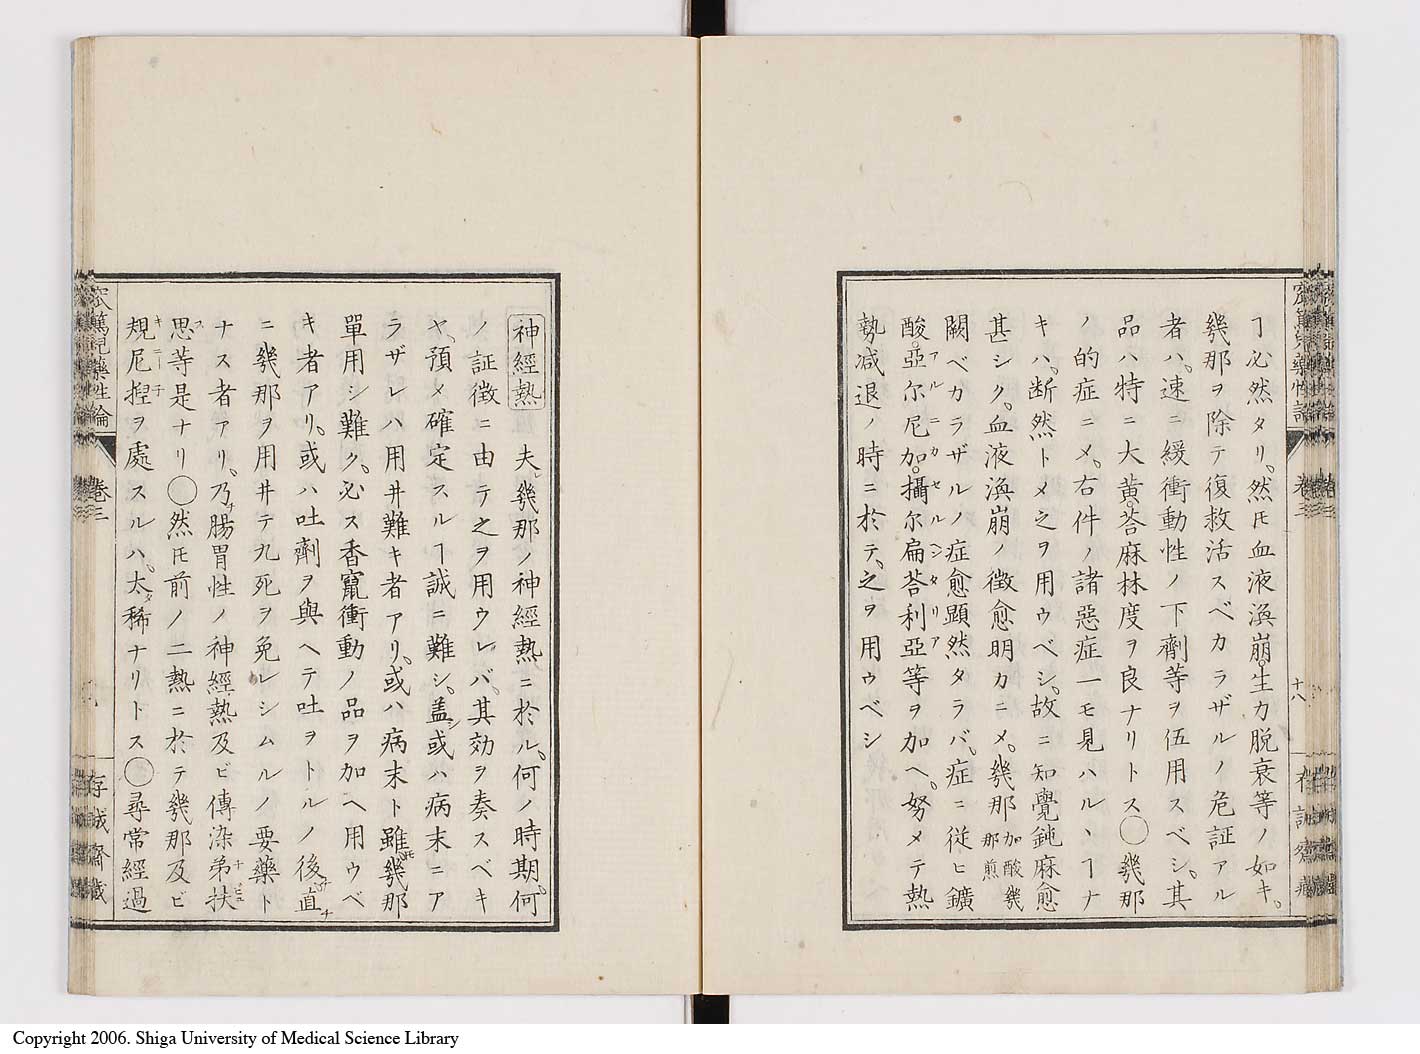 ヿ必然タリ、然𪜈血液渙崩。生力脱衰等ノ如キ。
幾那ヲ除テ復救活スベカラザルノ危証アル
者ハ、速ニ緩衝動性ノ下劑等ヲ伍用スベシ、其
品ハ特ニ大黄。荅麻林度ヲ良ナリトス〇幾那
ノ的症ニメ、右件ノ諸惡症一モ見ハルヽヿナ
キハ、断然トメ之ヲ用ウベシ、故ニ知覺鈍麻愈
甚シク、血液渙崩ノ徴愈明カニメ、幾那加酸幾那煎
闕ベカラザルノ症愈顕然タラバ、症ニ従ヒ鑛
酸。亞尓尼加。攝尓扁荅利亞等ヲ加ヘ、努メテ熱
アルニカセルヘンタリア
勢减退ノ時ニ於テ、之ヲ用ウベシ
窊篤児薬性論 卷三 十八
神經熱 夫レ幾那ノ神經熱ニ於ル、何ノ時期何
ノ証徴ニ由テ之ヲ用ウレバ、其効ヲ奏スベキ
ヤ、預メ確定スルヿ誠ニ難シ、盖シ或ハ病末ニア
ラザレハ用井難キ者アリ、或ハ病末ト雖𪜈幾那
單用シ難ク、必ス香竄衝動ノ品ヲ加ヘ用ウベ
キ者アリ、或ハ吐劑ヲ與ヘテ吐ヲトルノ後直
ニ幾那ヲ用井テ九死ヲ免レシムルノ要藥ト
ナス者アリ、乃腸胃性ノ神經熱及ビ傳染弟扶
思等是ナリ〇然𪜈前ノ二熱ニ於テ幾那及ビ
規尼捏ヲ處スルハ、太タ稀ナリトス〇尋常經過
キニーネ
窊篤児薬性論 卷三 存誠齋藏
Copyright 2006. Shiga University of Medical Science Library